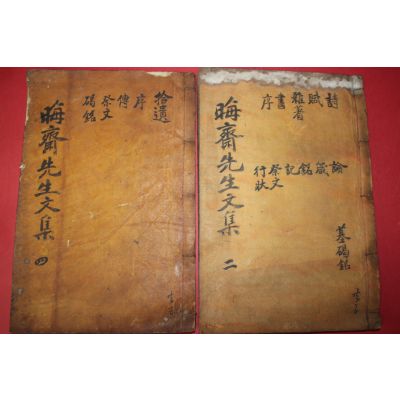 詩
賦
雜著
書
序
論
箴
銘
記
祭文
行狀
墓碣銘
晦齋先生文集 二
拾遺
序
傳
祭文
碣銘
晦齋先生文集 四